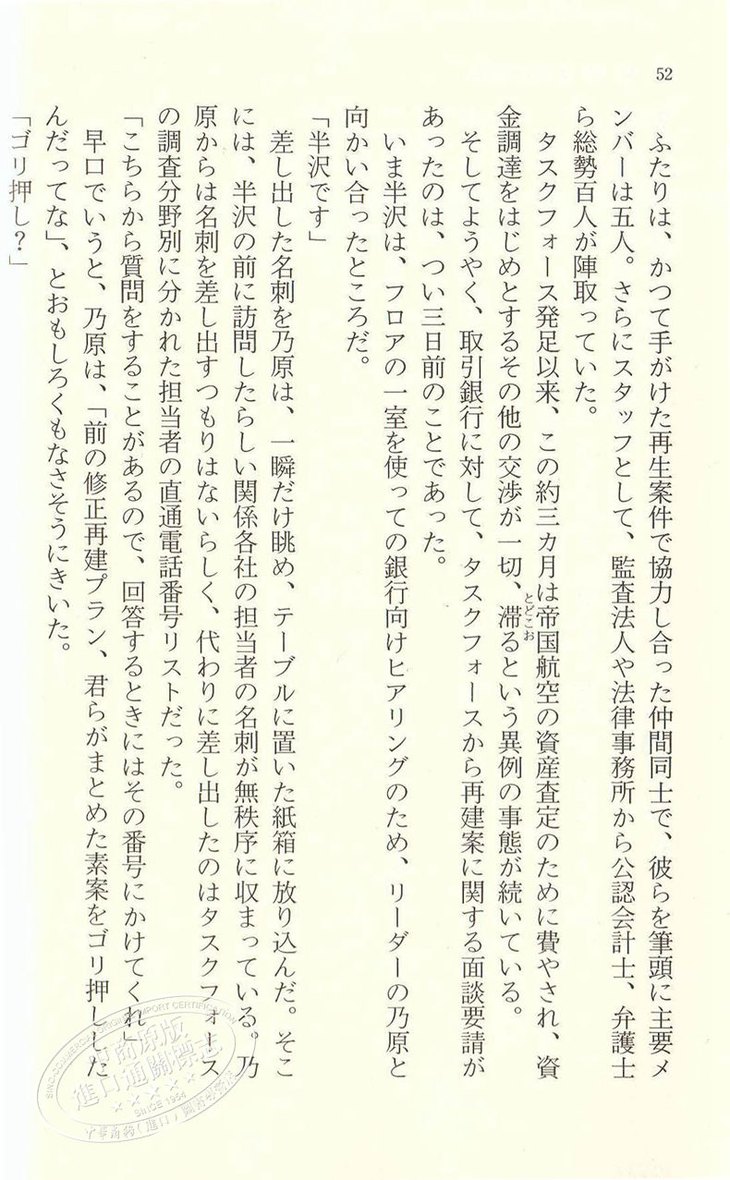 52
ふたりは、かつて手がけた再生案件で協力し合った仲間同士で、彼らを筆頭に主要メ
ンバーは五人。さらにスタッフとして、監査法人や法律事務所から公認会計士、弁護士
ら総勢百人が陣取っていた。
タスクフォース発足以来、この約三カ月は帝国航空の資産査定のために費やされ、資
金調達をはじめとするその他の交渉が一切、滞るという異例の事態が続いている。
とどこお
そしてようやく、取引銀行に対して、タスクフォースから再建案に関する面談要請が
あったのは、つい三日前のことであった。
いま半沢は、フロアの一室を使っての銀行向けヒアリングのため、リーダーの乃原と
向かい合ったところだ。
「半沢です」
差し出した名刺を乃原は、一瞬だけ眺め、テーブルに置いた紙箱に放り込んだ。そこ
には、半沢の前に訪問したらしい関係各社の担当者の名刺が無秩序に収まっている。乃
原からは名刺を差し出すつもりはないらしく、代わりに差し出したのはタスクフォース
の調査分野別に分かれた担当者の直通電話番号リストだった。
「こちらから質問をすることがあるので、回答するときにはその番号にかけてくれ」
早口でいうと、乃原は、「前の修正再建プラン、君らがまとめた素案をゴリ押しした
んだってな」、とおもしろくもなさそうにきいた。
「ゴリ押し？」
SINCE 1954
進口通關標誌